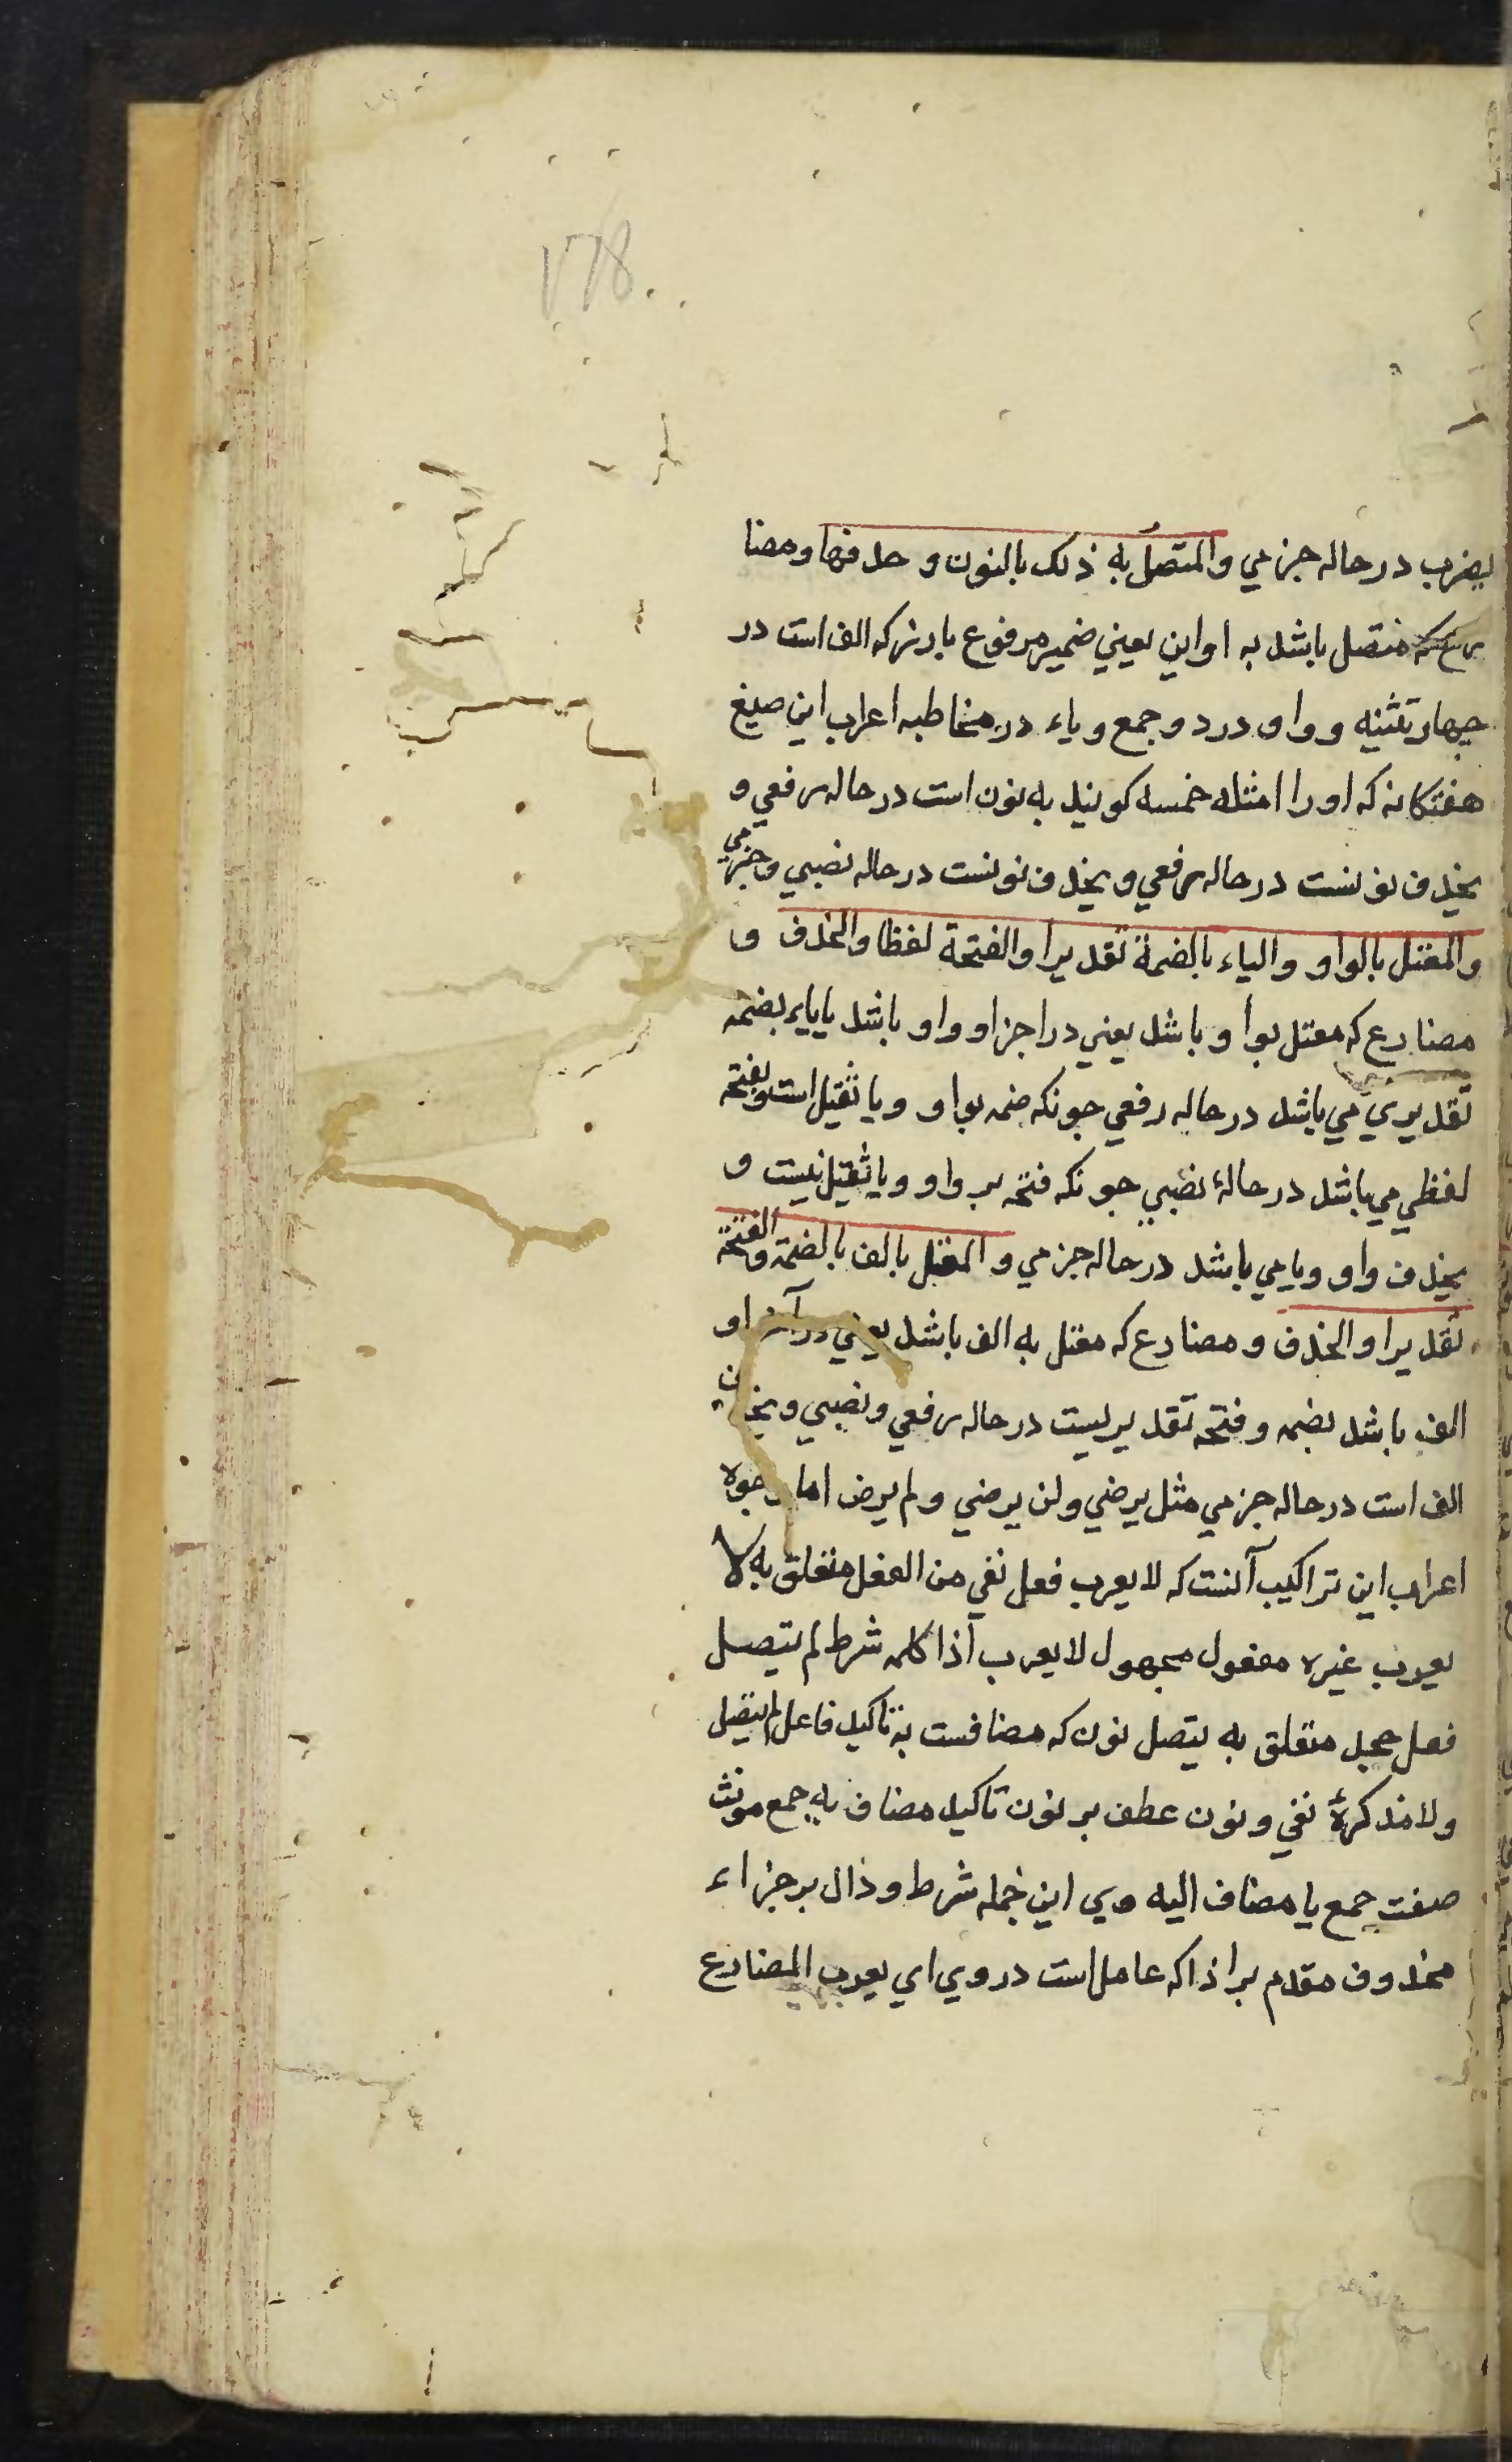 ١٧٨
يضرب در حاله جزمي والمتصل به ذلك بالنون و حذفها و مضا
رع كه متصل باشد به او اين يعني ضمير مرفوع بارز كه الف است در
چهار تثنيه و واو در دو جمع و ياء در مخاطبه اعراب اين صيغ
هفتكانه كه او را امثله خمسه كويند به نون است در حاله رفعي و
بحذف نونست در حاله رفعي و بحذف نونست در حاله نصبي و جزمي
والمعتل بالواو والياء بالضمة تقديرا والفتحة لفظا والحذف و
مضارع كه معتل بواو باشد يعني در اجز او واو باشد يا ياء بضمه
تقديري مي باشد در حاله رفعي جونكه ضمه بواو و يا ثقيل است و بفتحه
لفظي مي باشد در حالهٔ نصبي جونكه فتحه بر واو و يا ثقيل نيست و
بحذف واو و يا مي باشد در حاله جزمي و المعتل بالف بالضمة والفتحة
تقديرا والحذف و مضارع كه معتل به الف باشد يعني در آخر او
الف باشد بضمه و فتحه تقديريست در حاله رفعي و نصبي و بحذف
الف است در حاله جزمي مثل يرضي ولن يرضي و لم يرض اما وجوه
اعراب اين تراكيب آنست كه لا يعرب فعل نفي من الفعل متعلق به لا
يعرب غيره مفعول مجهول لا يعرب اذا كلمه شرط لم يتصل
فعل جحد متعلق به يتصل نون كه مضافست به تاكيد فاعل لم يتصل
ولا مذكرهٔ نفي و نون عطف بر نون تاكيد مضاف به جمع مونث
صفت جمع يا مضاف اليه وي اين جمله شرط و دال بر جزاء
محذوف مقدم بر اذا كه عامل است در وي اي يعرب المضارع